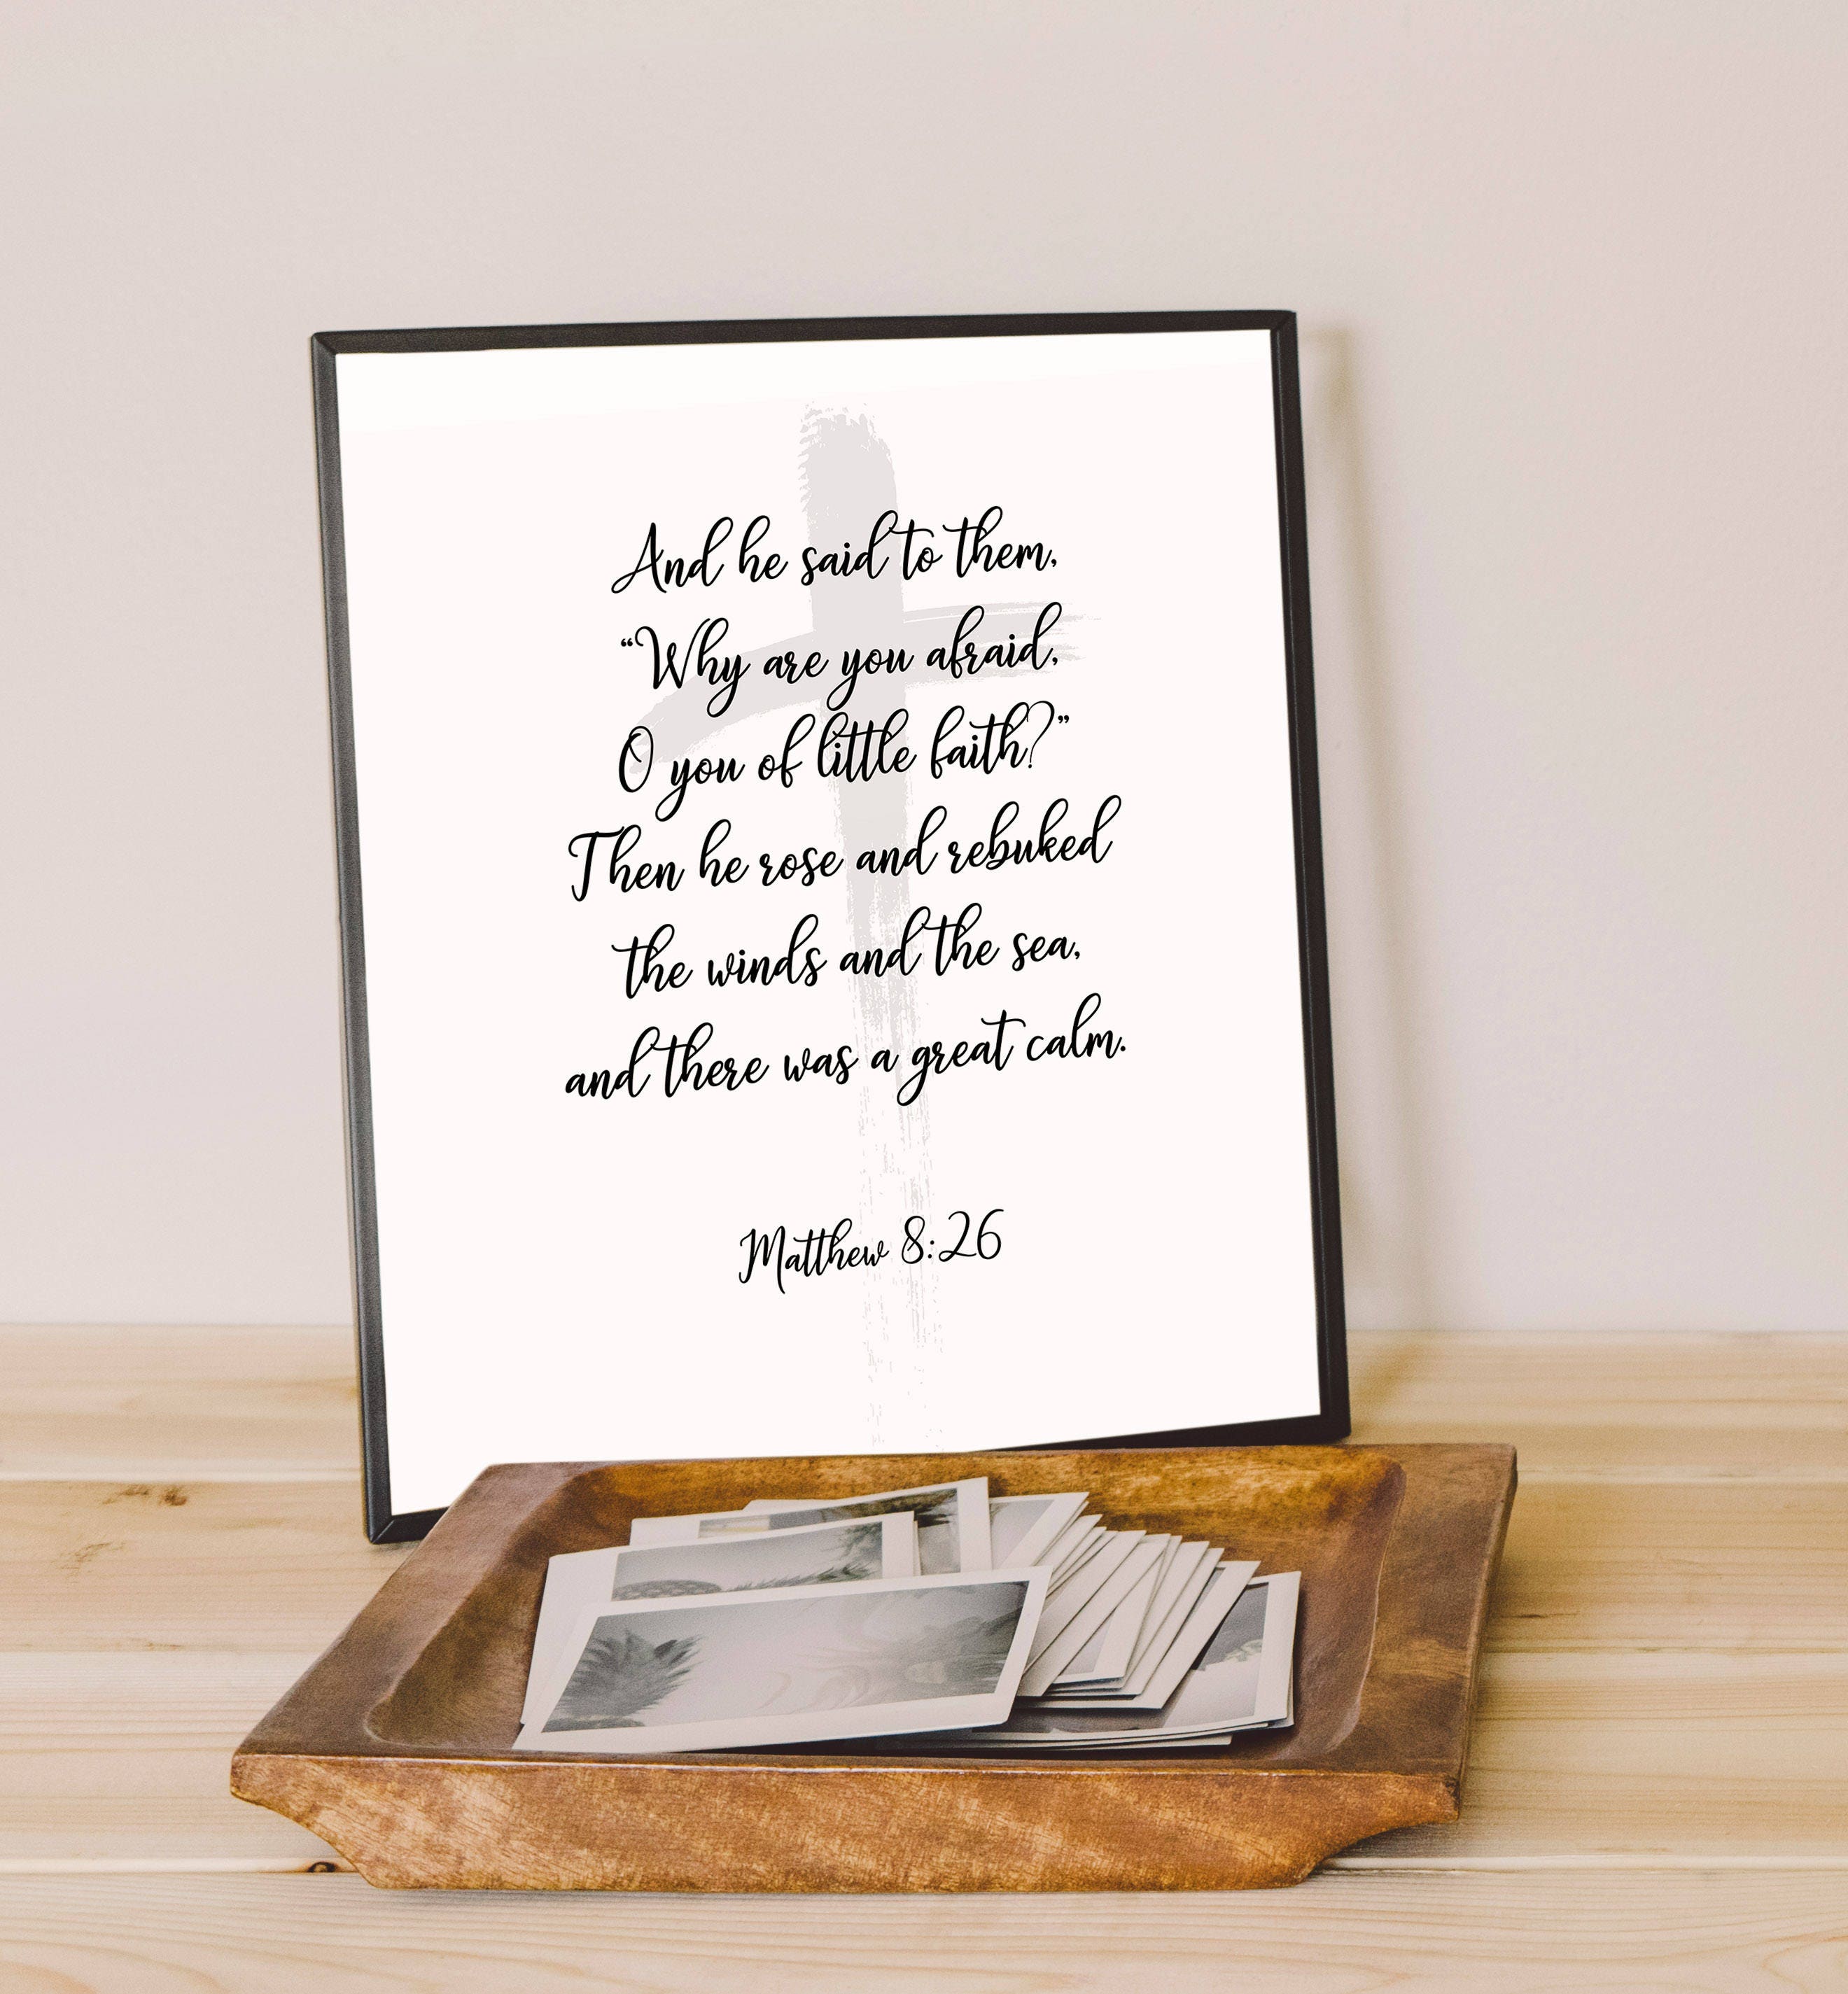 And he said to them,
“Why are you afraid,
O you of little faith?”
Then he rose and rebuked
the winds and the sea,
and there was a great calm.
Matthew 8:26